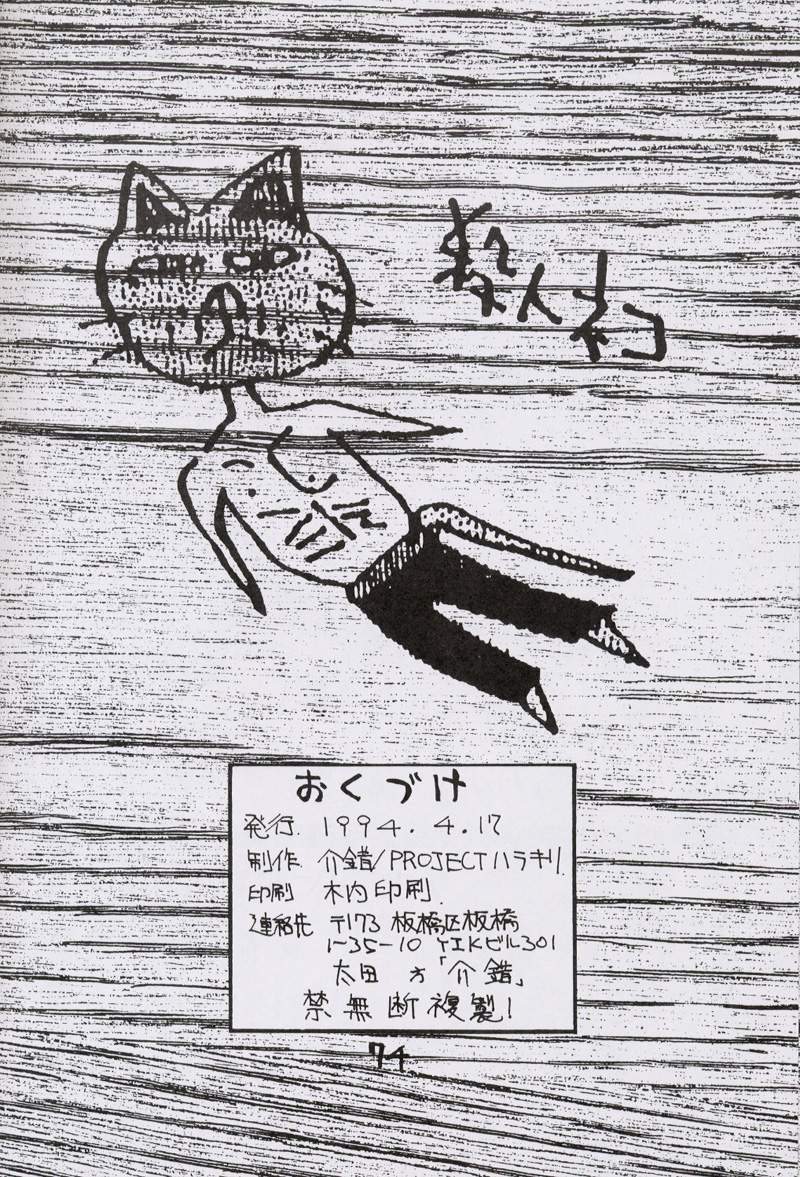 殺人ネコ
おくづけ
発行. 1994. 4. 17
制作. 介錯/PROJECTハラキリ.
印刷 木内印刷.
連絡先 〒173 板橋区板橋
1-35-10 YIKビル301
太田 方「介錯」
禁無断複製!
74